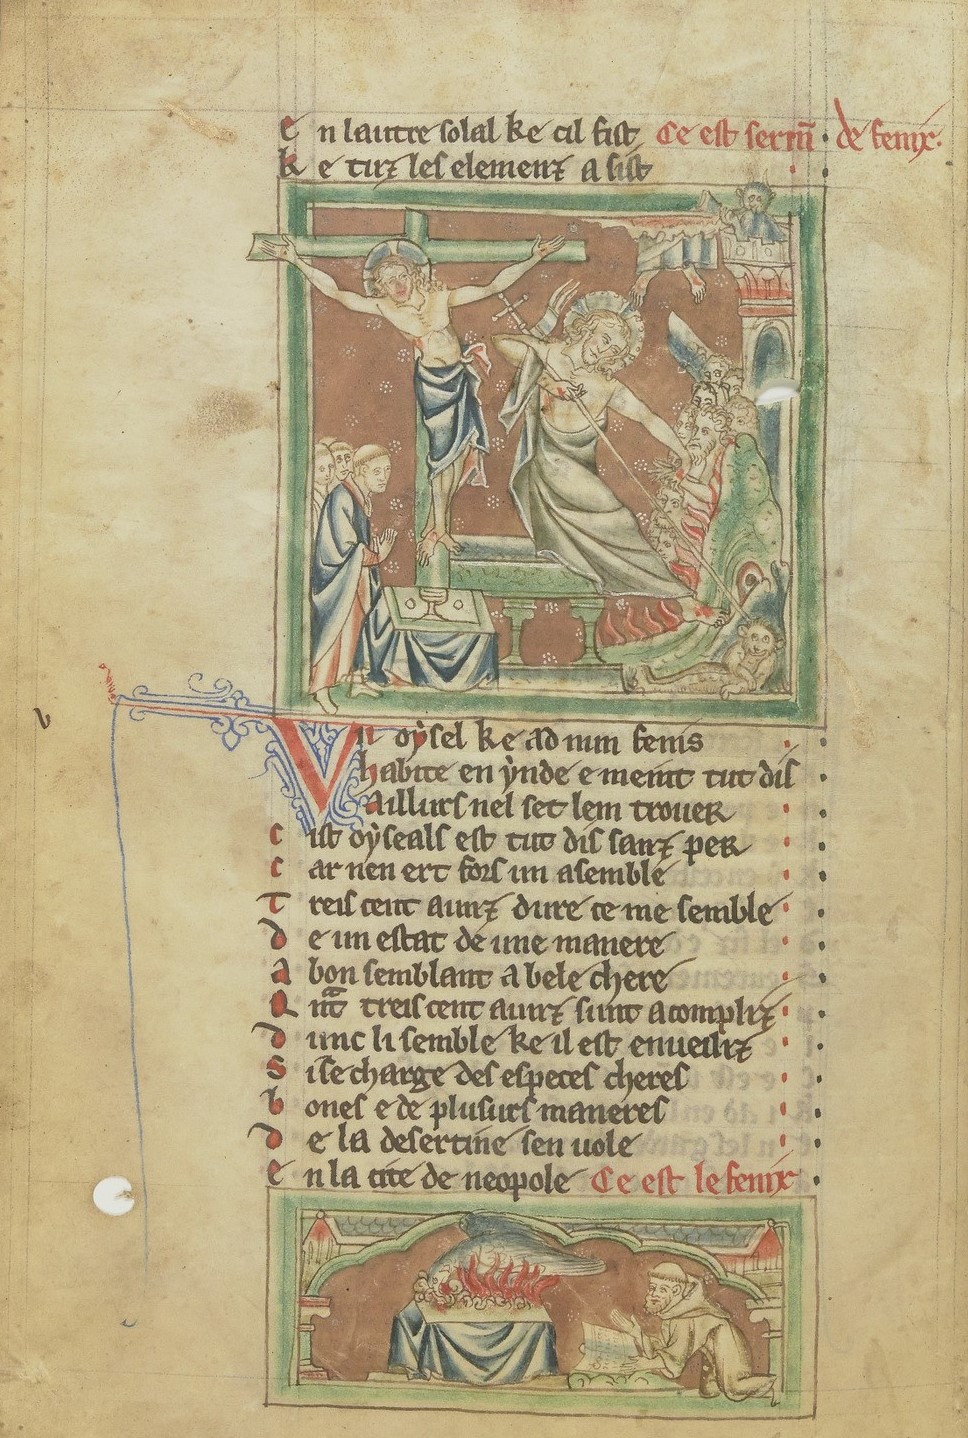 En lautre solal ke cil fist Ce est sermū de fenix.
Ke tuz les elemenz a sist
Vn oẏsel ke ad nun fenis
habite en ẏnde e meint tut dis
Aillurs nel set lem trouer
Cist oẏseals est tut dis sanz per
Car nen ert fors un asemble
Treis cent aunz dure ce me semble
De un estat de une manere
A bon semblant a bele chere
Qnt treis cent aunz sunt acompliz
Dunc li semble ke il est enueilliz
Si se charge des especes cheres
bones e de plusurs maneres
De la desertine sen uole
En la cite de neopole Ce est le fenix